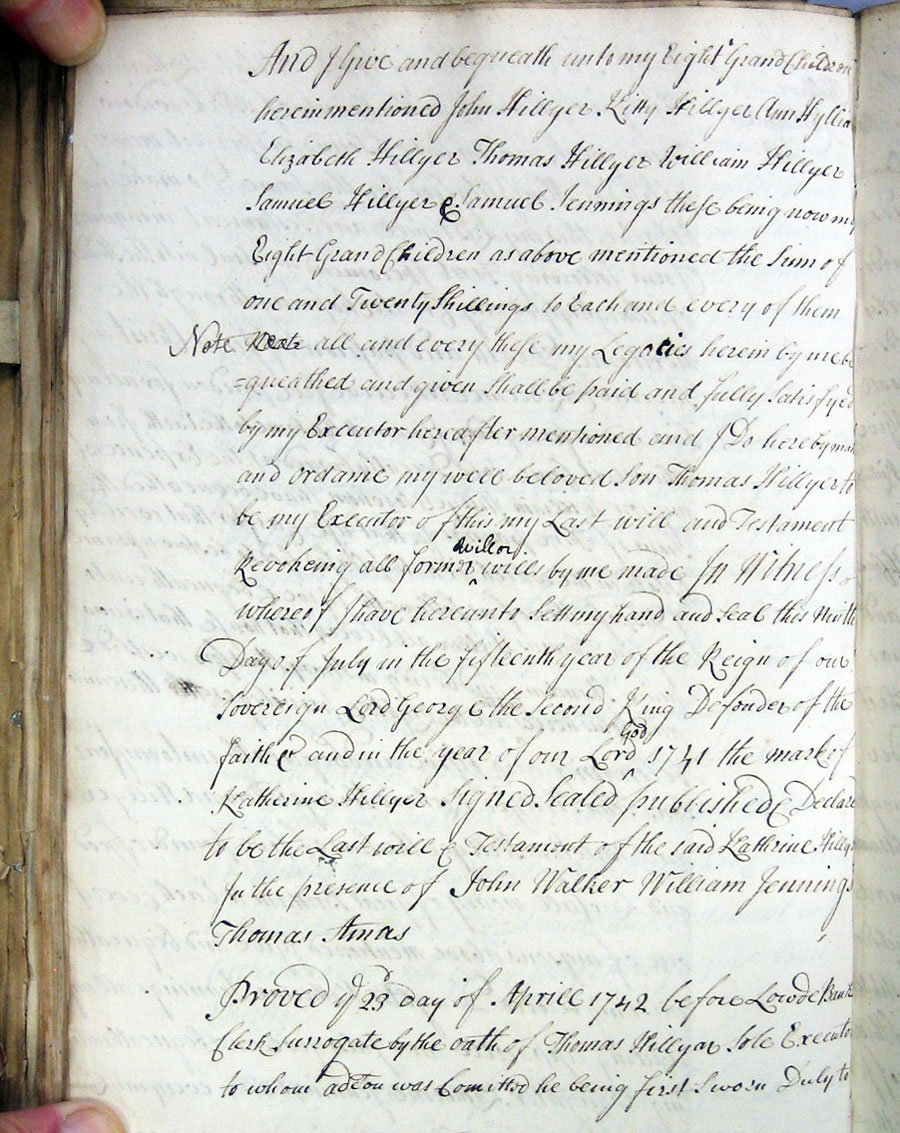 And I Give and bequeath unto my Eight Grand Children
hereinmentioned John Hillyer Kitty Hillyer Ann Hyllia
Elizabeth Hillyer Thomas Hillyer William Hillyer
Samuel Hillyer & Samuel Jennings these being now my
Eight Grand Children as above mentioned the Sum of
one and Twenty Shillings to Each and every of them
Note all and every these my Legacies herein by me be
=queathed and given Shall be paid and fully Satisfyed
by my Executor hereafter mentioned and I Do hereby mak
and ordaine my well beloved Son Thomas Hillyer to
be my Executor of this my Last will and Testament
Revokeing all former will or wills by me made In Witness
whereof I have hereunto Sett my hand and Seal this Ninth
Day of July in the fifteenth year of the Reign of our
Sovereign Lord George the Second King Defender of the
faith & and in the year of our Lord God 1741 the mark of
Katherine Hillyer Signed Sealed published & Declare
to be the Last will & Testament of the said Kathrine Hilly
In the presence of John Walker William Jennings
Thomas Amas
Proved ye 23 day of Aprill 1742 before Lowde
Clerk Surrogate by the oath of Thomas Hillyar Sole Executo
to whom adcon was Comitted he being first Sworn Duly to